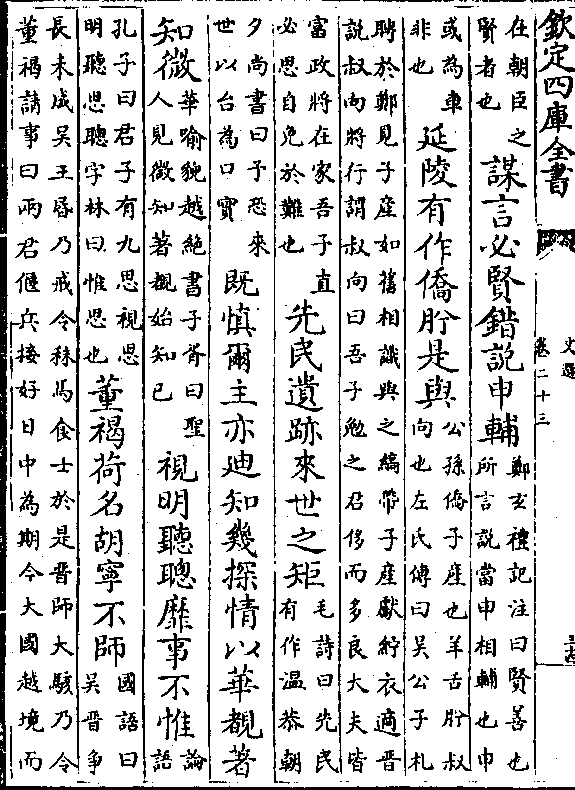 欽定四庫全書
文選
卷二十三
在朝臣之
賢者也
謀言必賢錯說申輔
鄭玄禮記注曰賢善也
所言說當申相輔也申
或為車
非也
延陵有作僑肸是與
公孫僑子產也羊舌肸叔
向也左氏傳曰吳公子札
聘於鄭見子產如舊相識與之縞帶子產獻紵衣適晉
說叔向將行謂叔向曰吾子勉之君侈而多良大夫皆
富政將在家吾子直
必思自免於難也
先民遺跡來世之矩
毛詩曰先民
有作溫恭朝
夕尚書曰予恐來
世以台為口實
既慎爾主亦迪知幾探情以華覩著
知微
華喻貌越絕書子胥曰聖
人見微知著覩始知已
視明聽聰靡事不惟
論
語
孔子曰君子有九思視思
明聽思聰字林曰惟思也
董褐荷名胡寧不師
國語曰
吳晉爭
長未成吳王昏乃戒令秣馬食士於是晉師大駭乃令
董褐請事曰兩君偃兵接好日中為期今大國越境而